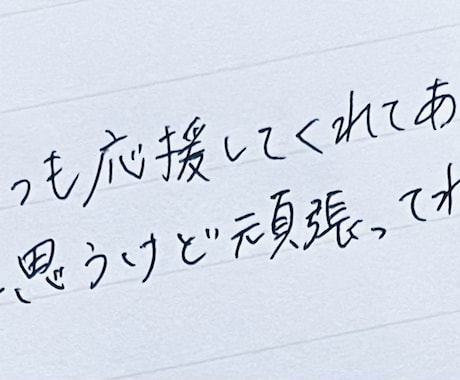 っも応援してくれてあ
思うけど頑張ってね